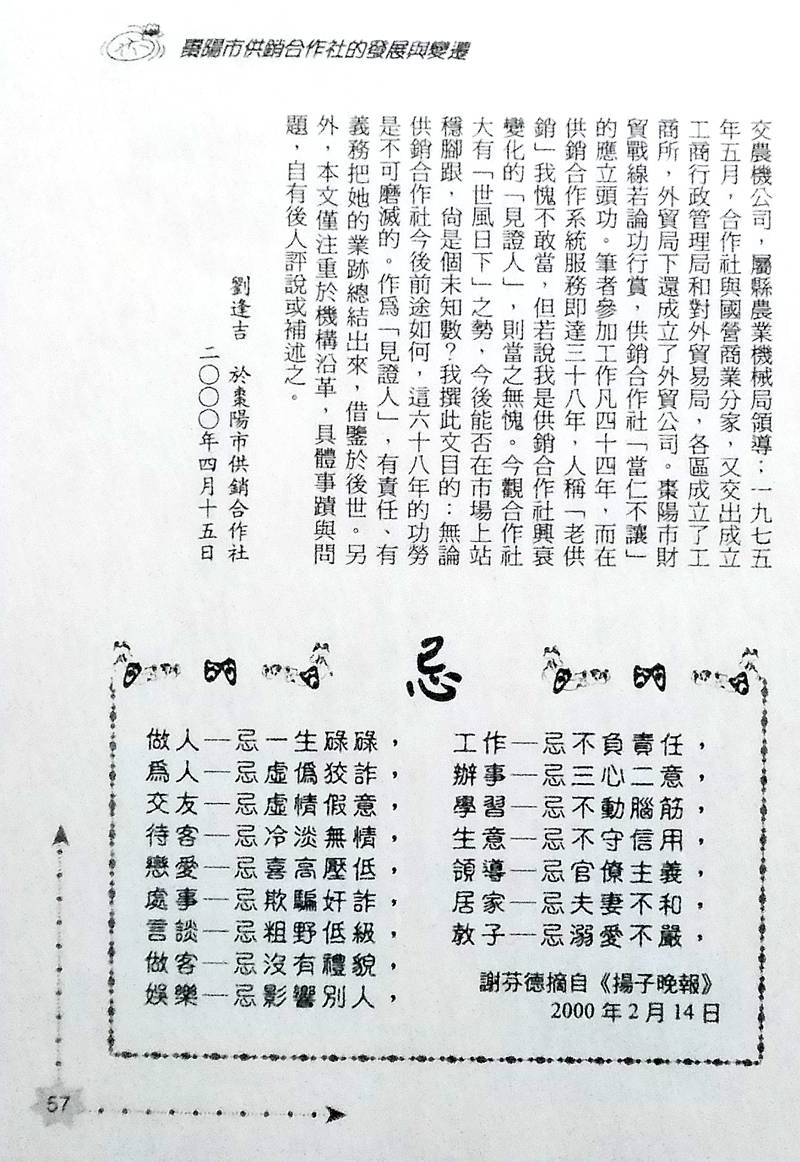 棗陽市供銷合作社的發展與變遷
交農機公司，屬縣農業機械局領導；一九七五
年五月，合作社與國營商業分家，又交出成立
工商行政管理局和對外貿易局，各區成立了工
商所，外貿局下還成立了外貿公司。棗陽市財
貿戰線若論功行賞，供銷合作社「當仁不讓」
的應立頭功。筆者參加工作凡四十四年，而在
供銷合作系統服務即達三十八年，人稱「老供
銷」我愧不敢當，但若說我是供銷合作社興衰
變化的「見證人」，則當之無愧。今觀合作社
大有「世風日下」之勢，今後能否在市場上站
穩腳跟，尚是個未知數？我撰此文目的：無論
供銷合作社今後前途如何，這六十八年的功勞
是不可磨滅的。作爲「見證人」，有責任、有
義務把她的業跡總結出來，借鑒於後世。另
外，本文僅注重於機構沿革，具體事蹟與問
題，自有後人評說或補述之。
劉逢吉　於棗陽市供銷合作社
二〇〇〇年四月十五日
忌
做人—忌一生碌碌，
爲人—忌虛僞狡詐，
交友—忌虛情假意，
待客—忌冷淡無情，
戀愛—忌喜高壓低，
處事—忌欺騙奸詐，
言談—忌粗野低級，
做客—忌沒有禮貌，
娛樂—忌影響別人，
工作—忌不負責任，
辦事—忌三心二意，
學習—忌不動腦筋，
生意—忌不守信用，
領導—忌官僚主義，
居家—忌夫妻不和，
教子—忌溺愛不嚴，
謝芬德摘自《揚子晚報》
2000年2月14日
57